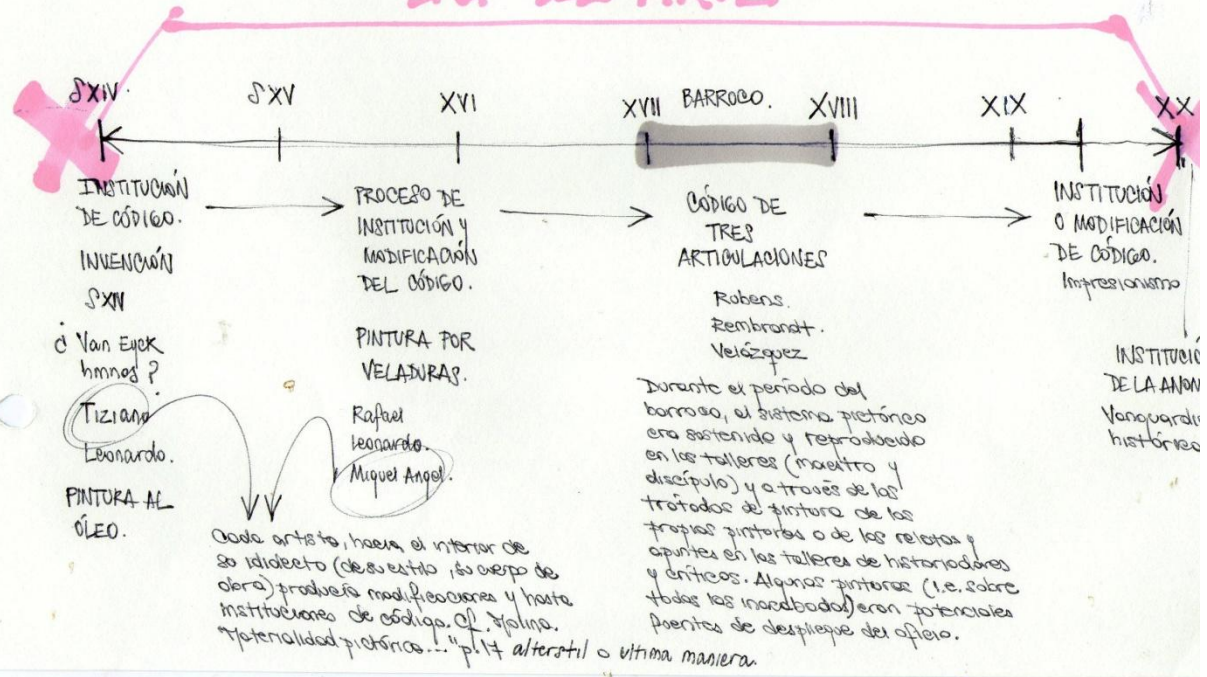 SXIV.
SXV
XVI
XVII
BARROCO.
XVIII
XIX
XX
INSTITUCIÓN
DE CÓDIGO.
INVENCIÓN
SXIV
¿Van Eyck
hmnos?
Tiziano
Leonardo.
PINTURA AL
ÓLEO.
PROCESO DE
INSTITUCIÓN Y
MODIFICACIÓN
DEL CÓDIGO.
PINTURA POR
VELADURAS.
Rafael
Leonardo.
Miguel Angel.
Cada artista, hacia el interior de
su idiolecto (de su estilo, su cuerpo de
obra) producía modificaciones y hasta
instituciones de código. Cf. Molina.
"Materialidad pictórica..." p.17 alterstil o ultima maniera.
CÓDIGO DE
TRES
ARTICULACIONES
Rubens.
Rembrandt.
Velázquez
Durante el período del
barroco, el sistema pictórico
era sostenido y reproducido
en los talleres (maestro y
discípulo) y a través de los
tratados de pintura de los
propios pintores o de los relatos y
apuntes en los talleres de historiadores
y críticos. Algunas pinturas (i.e. sobre
todas las inacabadas) eran potenciales
fuentes de despliegue del oficio.
INSTITUCIÓN
O MODIFICACIÓN
DE CÓDIGO.
Impresionismo
INSTITUCIÓ
DE LA ANOM
Vanguardia
histórica